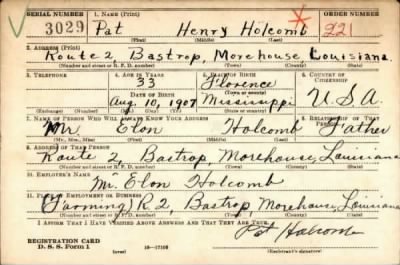 SERIAL NUMBER 1. NAME (Print) ORDER NUMBER
3029 Pat Henry Holcomb 221
(First) (Middle) (Last)
2. ADDRESS (Print)
Route 2 Bastrop, Morehouse, Louisiana.
(Number and street or R. F. D. number) (Town) (County) (State)
3. TELEPHONE 4. AGE IN YEARS 5. PLACE OF BIRTH 6. COUNTRY OF CITIZENSHIP
33 Florence
DATE OF BIRTH (Town or county)
Aug, 10, 1907 Mississippi U.S.A
(Exchange) (Number) (Mo.) (Day) (Yr.) (State or country)
7. NAME OF PERSON WHO WILL ALWAYS KNOW YOUR ADDRESS 8. RELATIONSHIP OF THAT PERSON
Mr. Elon Holcomb Father
(Mr., Mrs., Miss) (First) (Middle) (Last)
9. ADDRESS OF THAT PERSON
Route 2, Bastrop, Morehouse, Louisiana
(Number and street or R. F. D. number) (Town) (County) (State)
10. EMPLOYER'S NAME
Mr. Elon Holcomb
11. PLACE OF EMPLOYMENT OR BUSINESS
(Farming) R 2, Bastrop, Morehouse, Louisiana
(Number and street or R. F. D. number) (Town) (County) (State)
I AFFIRM THAT I HAVE VERIFIED ABOVE ANSWERS AND THAT THEY ARE TRUE.
Pat Holcomb
REGISTRATION CARD
D. S. S. Form 1 (over) 16—17105 (Registrant's signature)